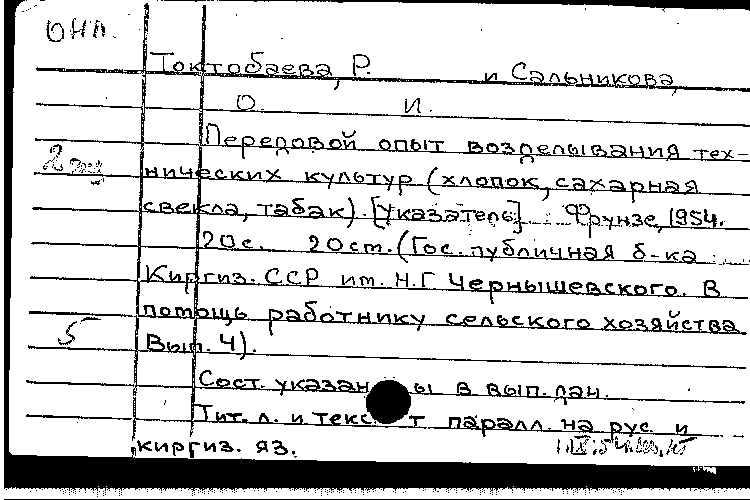 ОНЛ.
Токтобаева, Р. и Сальникова,
О. И.
Передовой опыт возделывания тех-
2 экз
нических культур (хлопок, сахарная
свекла, табак). [Указатель]. Фрунзе, 1954.
20с. 20 см. (Гос. публичная б-ка
Киргиз. ССР им. Н.Г Чернышевского. В
помощь работнику сельского хозяйства
5
Вып. 4).
Сост. указаны в вып. дан.
Тит. л. и текст паралл. на рус. и
киргиз. яз.